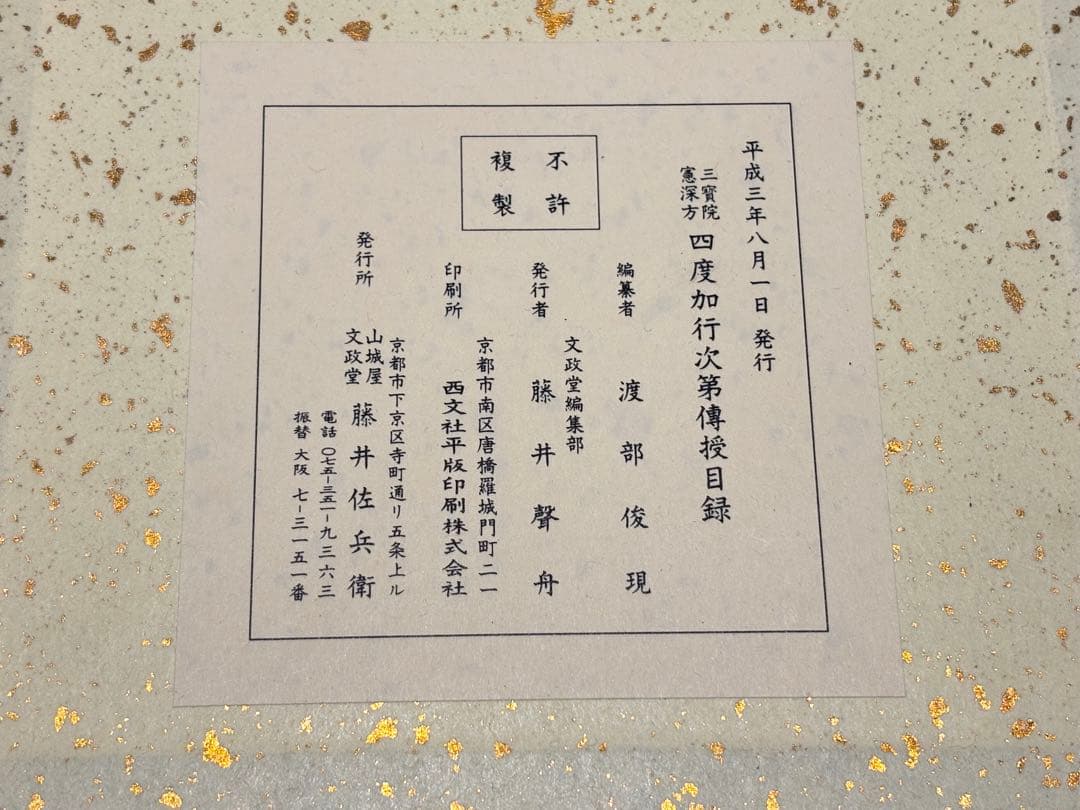 平成三年八月一日 発行
三寳院
憲深方
四度加行次第傳授目録
編纂者 渡部俊現
文政堂編集部
発行者 藤井聲舟
不許
複製
京都市南区唐橋羅城門町二一
印刷所 西文社平版印刷株式会社
京都市下京区寺町通リ五条上ル
発行所
山城屋
文政堂
藤井佐兵衛
電話 〇七五-三五一-九三六三
振替 大阪 七-三一五一番